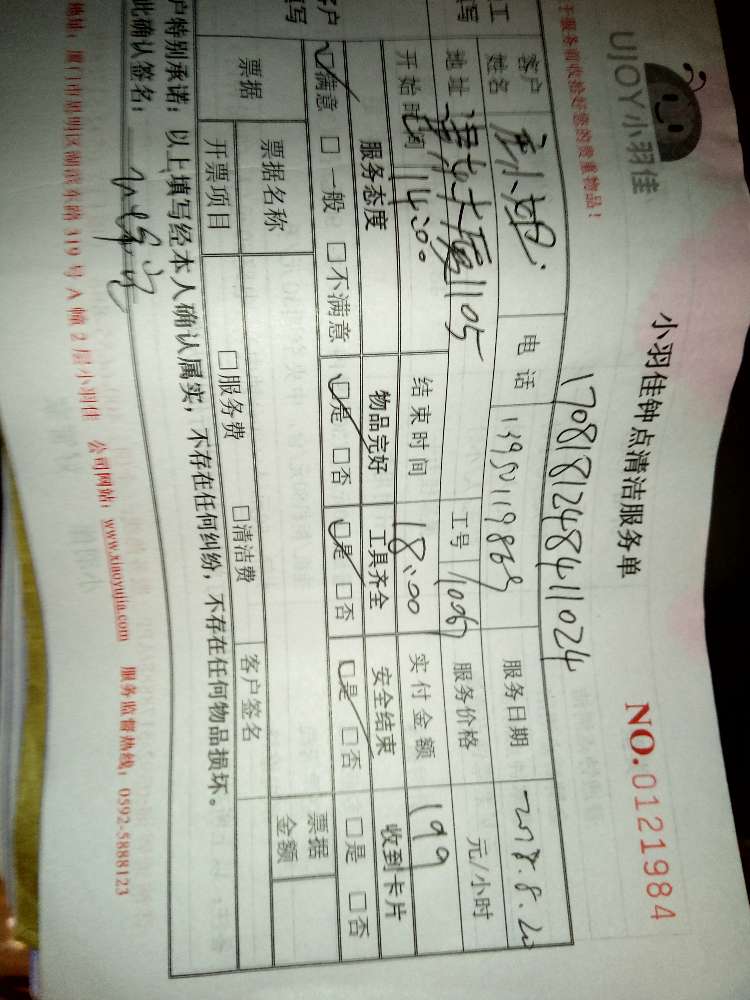 UJOY小羽佳
小羽佳钟点清洁服务单
NO.0121984
于服务前收拾好您的贵重物品！
1708181248411024
工
写
客户
姓名
电话
服务日期
2018.8.20
地址
1105
工号
服务价格
元/小时
开始时间
14:00
结束时间
18:00
实付金额
199
客户
填写
服务态度
物品完好
工具齐全
安全结束
收到卡片
☑满意 □一般 □不满意
☑是 □否
☑是 □否
☑是 □否
□是 □否
票据
票据名称
票据
金额
开票项目
□服务费 □清洁费
客户签名
户特别承诺：以上填写经本人确认属实，不存在任何纠纷，不存在任何物品损坏。
此确认签名：
地址：厦门市思明区湖滨东路319号A幢2层小羽佳 公司网站：www.xiaoyujia.com 服务监督热线：0592-5888123